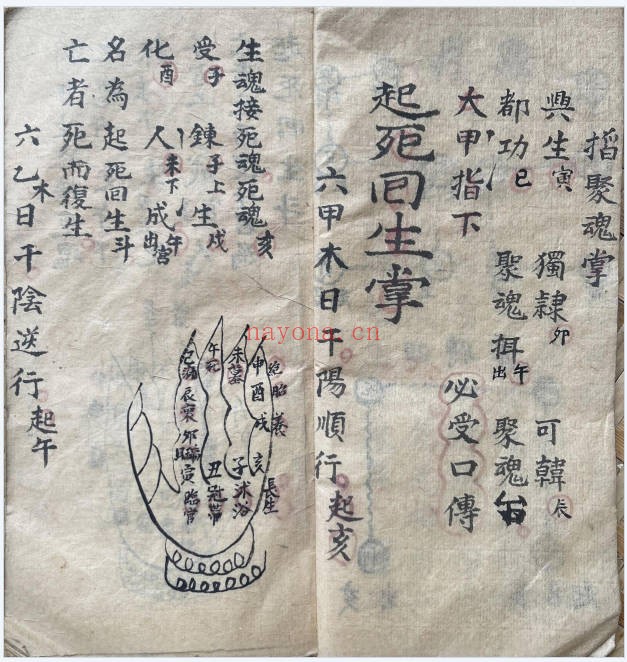 搯聚魂掌
興生寅 獨隷卯 可韓辰
都功巳 聚魂午出 聚魂
大甲指下 必受口傳
起死回生掌
六甲木日干陽順行起亥
生魂接死魂死魂亥
受子 鍊子上生戌
化酉 人未下成午出宫
名為起死回生斗
亡者死而復生
六乙木日干陰逆行起午
絶胎養長生
申酉戌亥
未墓 子沐浴
午死 丑冠帶
巳病辰衰卯帝旺寅臨官
nayona.cn